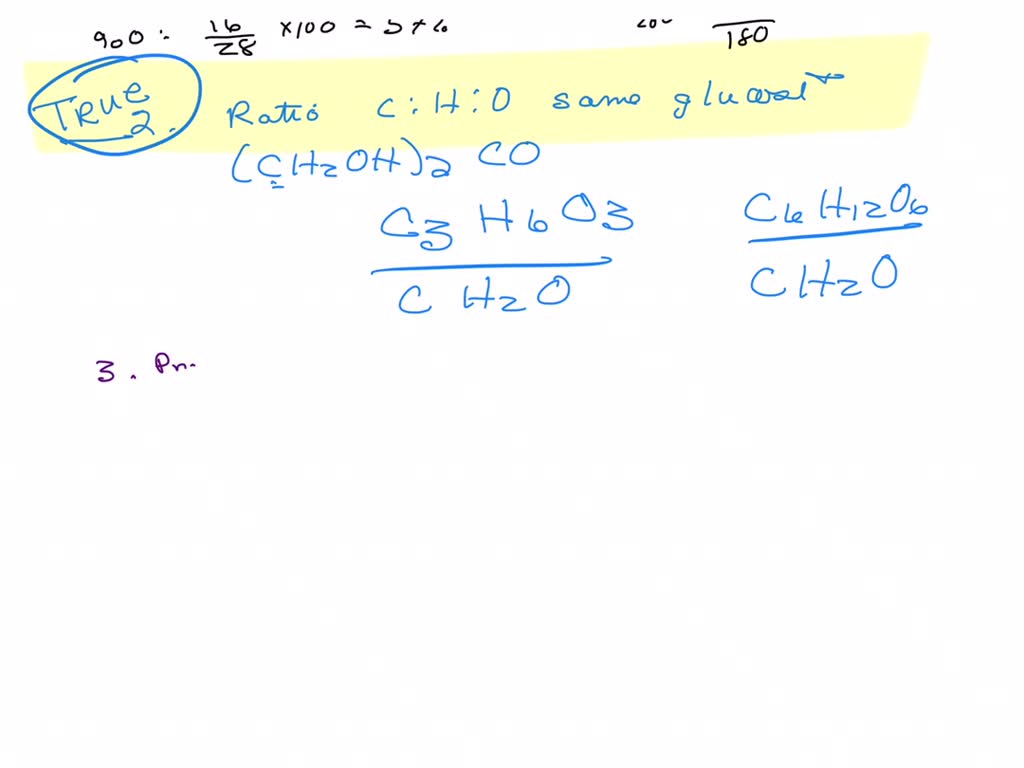 %O : 16/28 x100 = 57%
180
TRUE 2. Ratio C:H:O same glucose
(CH2OH)2 CO
C3 H6 O3 C6H12O6
C H2O CH2O
3. Pr.